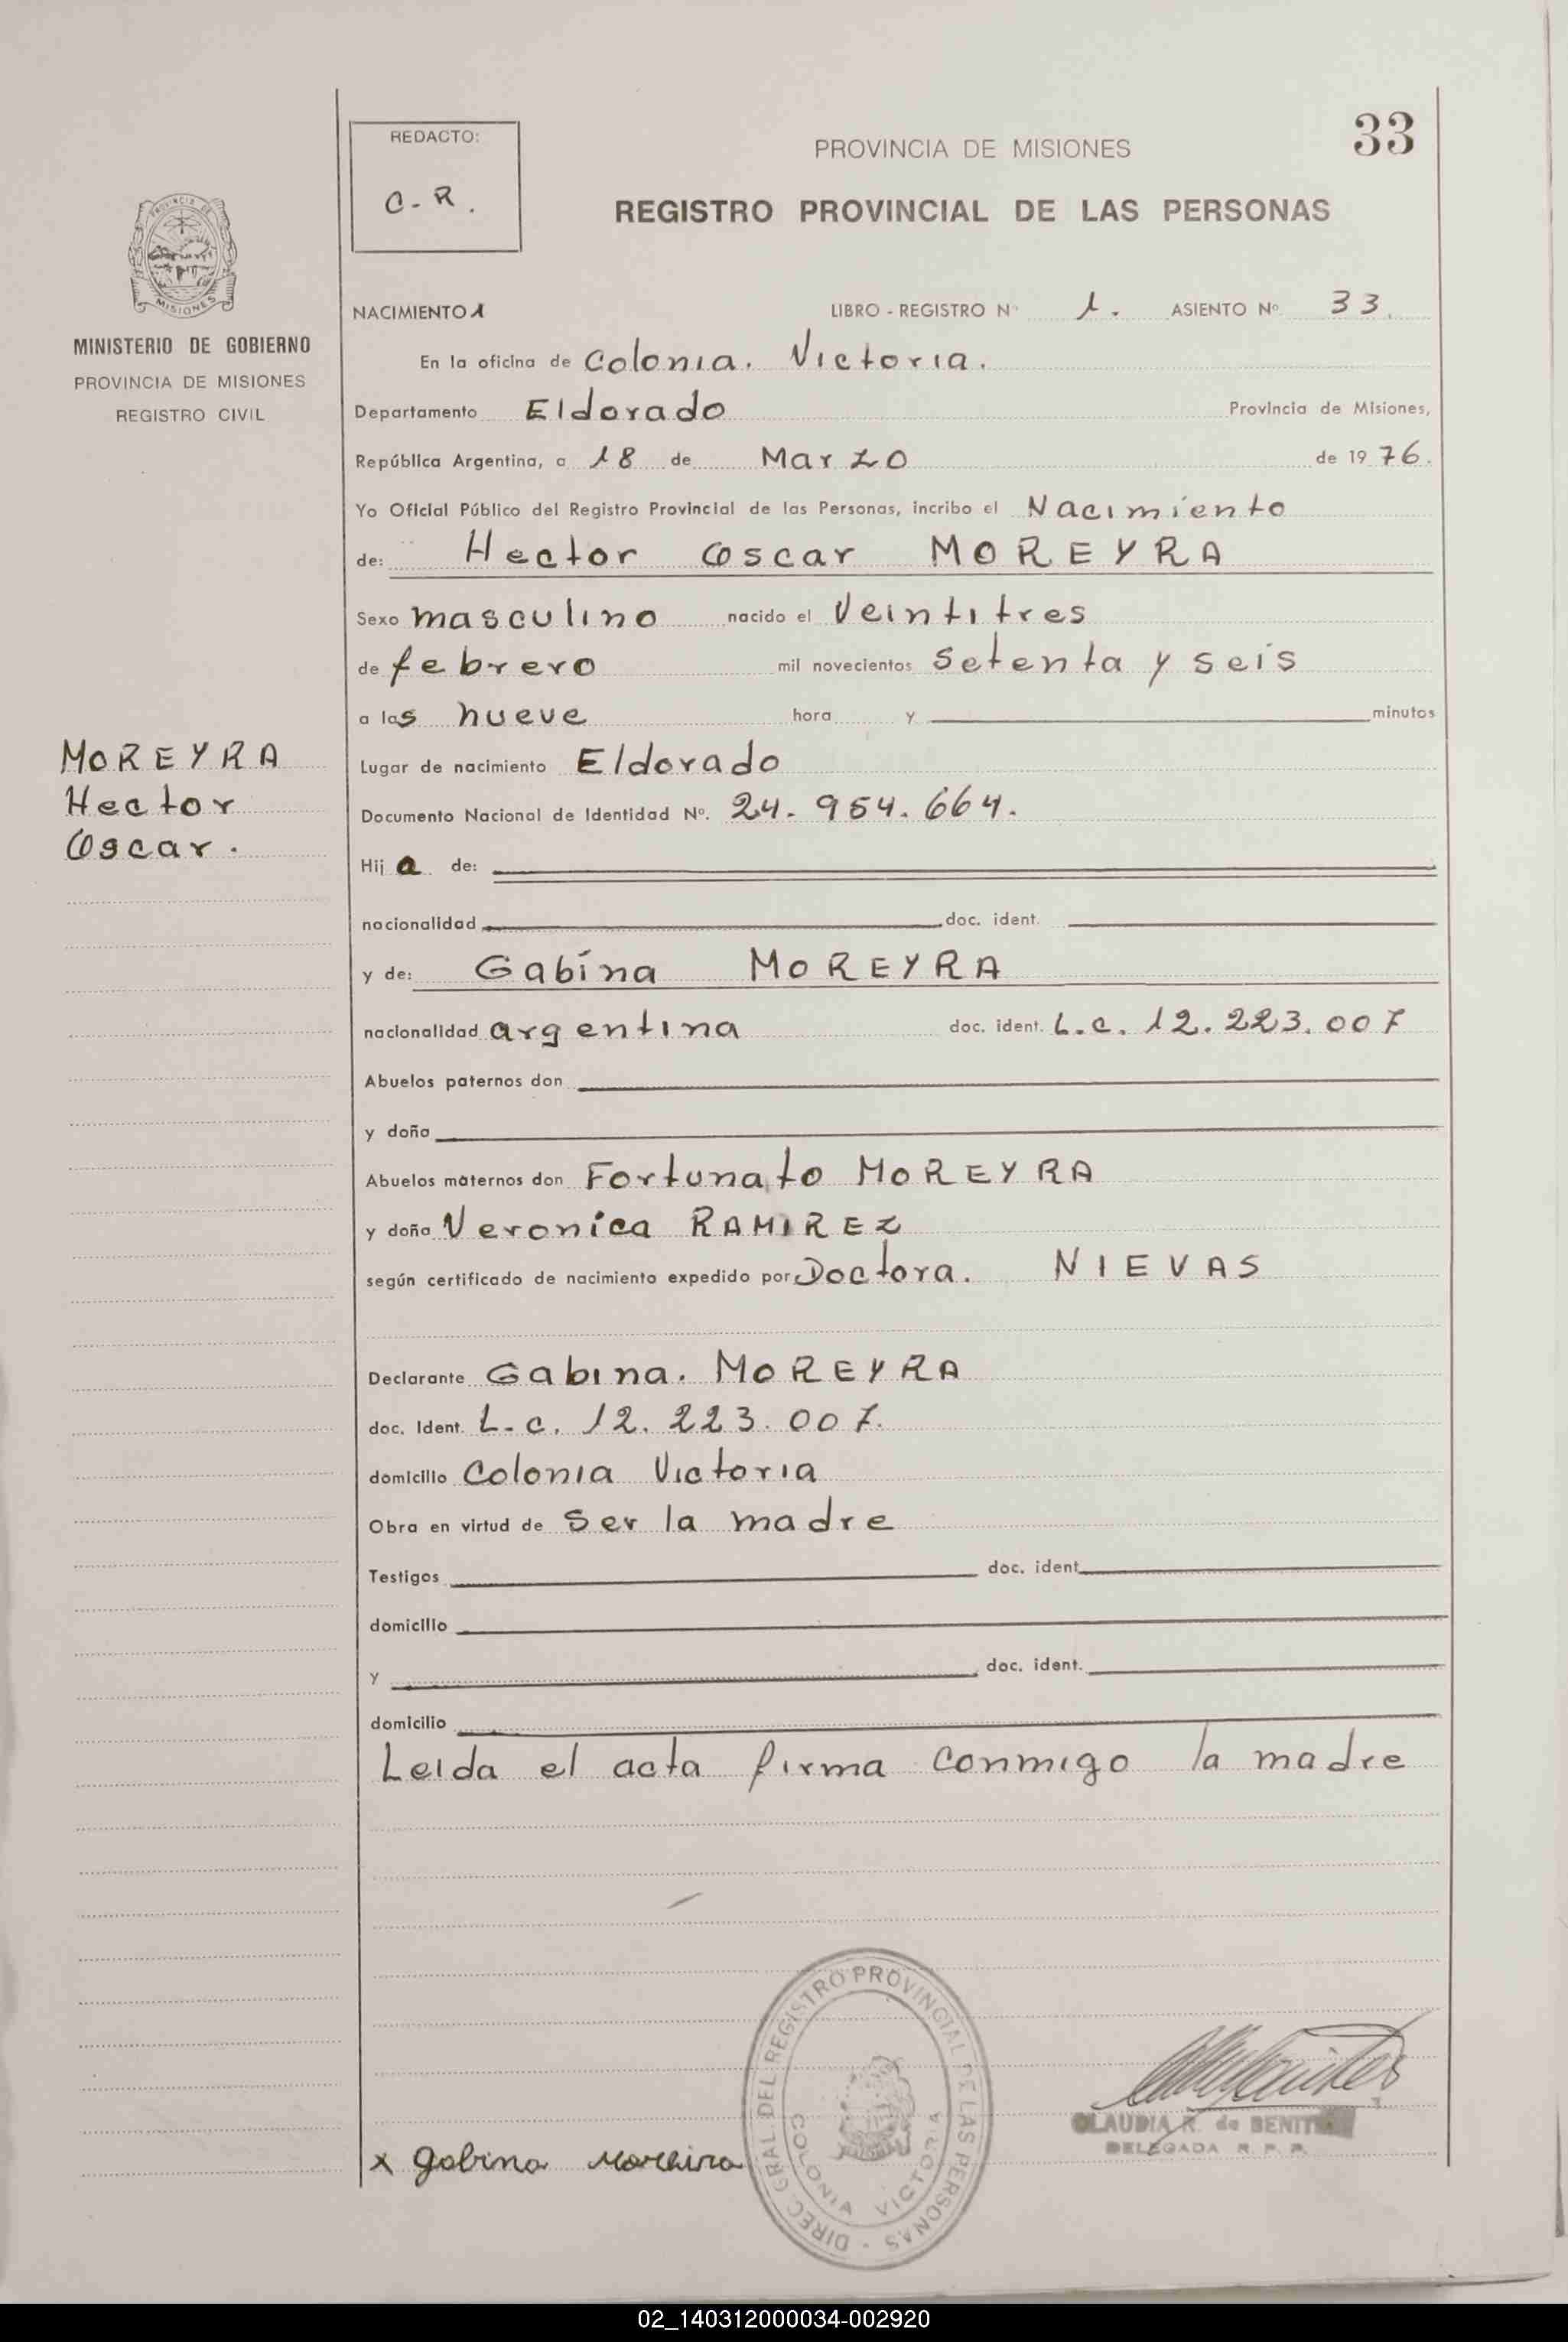 33
REDACTO:
C-R.
PROVINCIA DE MISIONES
REGISTRO PROVINCIAL DE LAS PERSONAS
PROVINCIA DE
MISIONES
MINISTERIO DE GOBIERNO
PROVINCIA DE MISIONES
REGISTRO CIVIL
NACIMIENTO 1 LIBRO - REGISTRO Nº 1. ASIENTO Nº 33.
En la oficina de Colonia. Victoria.
Departamento Eldorado Provincia de Misiones,
República Argentina, a 18 de Marzo de 1976.
Yo Oficial Público del Registro Provincial de las Personas, incribo el Nacimiento
de: Hector Oscar MOREYRA
Sexo masculino nacido el Veintitres
de febrero mil novecientos setenta y seis
a las nueve hora y minutos
MOREYRA
Hector
Oscar.
Lugar de nacimiento Eldorado
Documento Nacional de Identidad Nº. 24. 954. 664.
Hij a de:
nacionalidad doc. ident.
y de: Gabina MOREYRA
nacionalidad argentina doc. ident. L.c. 12. 223. 007
Abuelos paternos don
y doña
Abuelos maternos don Fortunato MOREYRA
y doña Veronica RAMIREZ
según certificado de nacimiento expedido por Doctora. NIEVAS
Declarante Gabina. MOREYRA
doc. Ident. L-c. 12. 223. 007.
domicilio Colonia Victoria
Obra en virtud de Ser la madre
Testigos doc. ident.
domicilio
y doc. ident.
domicilio
Leida el acta firma conmigo la madre
DIREC. GRAL. DEL REGISTRO PROVINCIAL DE LAS PERSONAS -
COLONIA VICTORIA
CLAUDIA R. de
DELEGADA R. P. P.
x gabina moreira
02_140312000034-002920